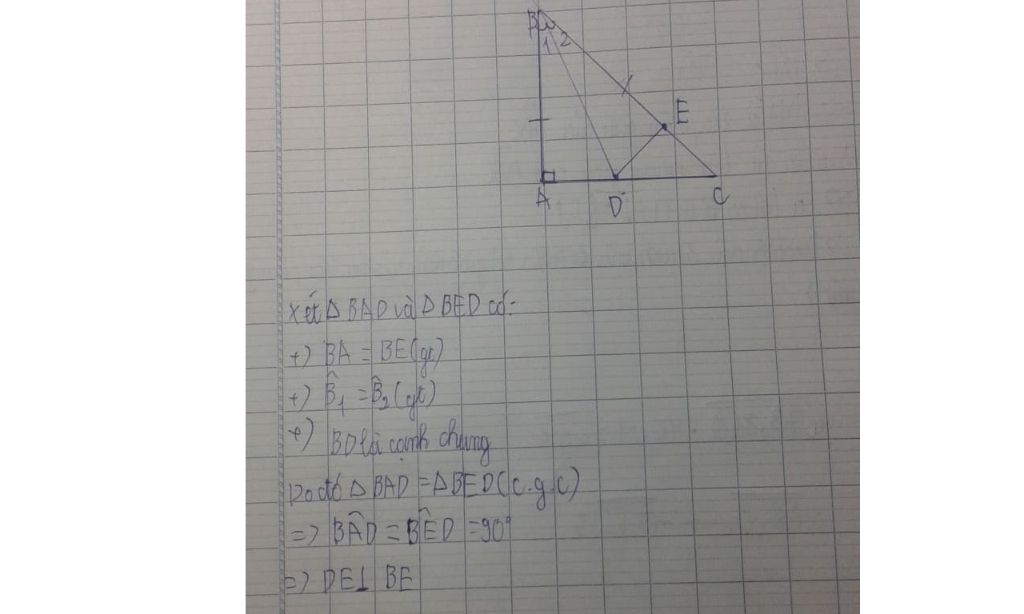 B
1 2
E
A D C
Xét Δ BAD và Δ BED có:
+) BA = BE (gt)
+) B̂₁ = B̂₂ (gt)
+) BD là cạnh chung
Do đó Δ BAD = Δ BED (c.g.c)
=> BÂD = BÊD = 90°
=> DE ⊥ BE